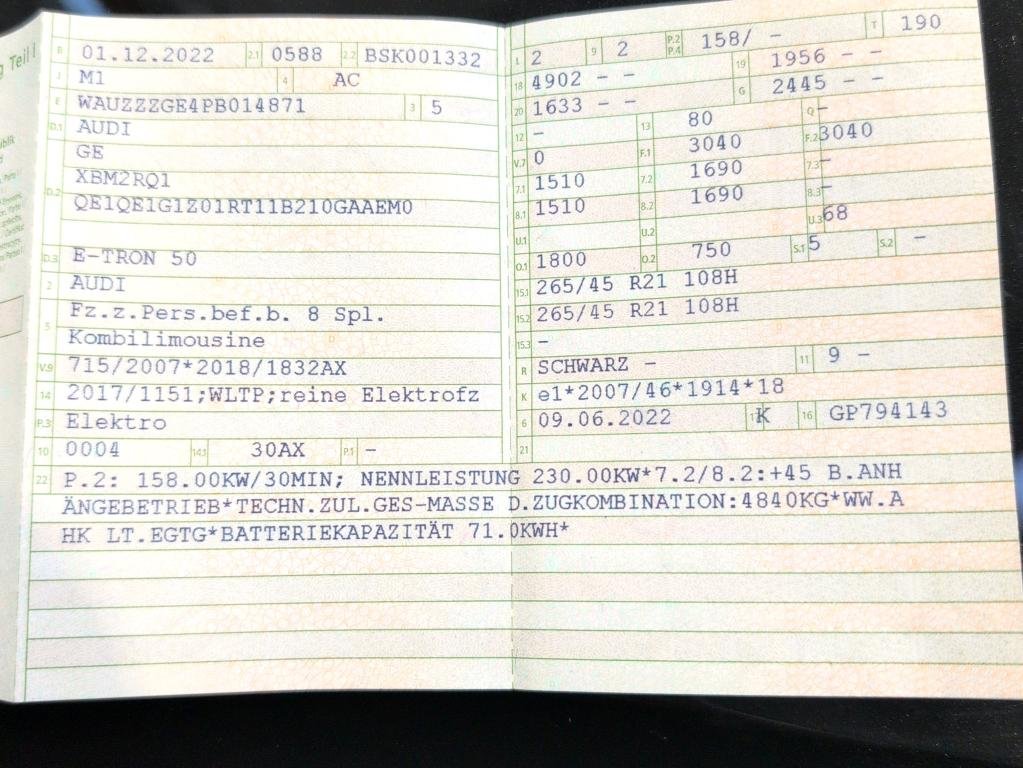 g Teil I
B 01.12.2022 2.1 0588 2.2 BSK001332
J M1 4 AC
E WAUZZZGE4PB014871 3 5
D.1 AUDI
GE
D.2 XBM2RQ1
QE1QE1G1Z01RT11B210GAAEM0
D.3 E-TRON 50
2 AUDI
5 Fz.z.Pers.bef.b. 8 Spl.
Kombilimousine
V.9 715/2007*2018/1832AX
14 2017/1151;WLTP;reine Elektrofz
P.3 Elektro
10 0004 14.1 30AX P.1 -
L 2 9 2 P.2 P.4 158/ - T 190
18 4902 - - 19 1956 - -
20 1633 - - G 2445 - -
12 - 13 80 Q -
V.7 0 F.1 3040 F.2 3040
7.1 1510 7.2 1690 7.3 -
8.1 1510 8.2 1690 8.3 -
U.1 U.2 U.3 68
O.1 1800 O.2 750 S.1 5 S.2 -
15.1 265/45 R21 108H
15.2 265/45 R21 108H
15.3 -
R SCHWARZ - 11 9 -
K e1*2007/46*1914*18
6 09.06.2022 17 K 16 GP794143
21
22 P.2: 158.00KW/30MIN; NENNLEISTUNG 230.00KW*7.2/8.2:+45 B.ANH
ÄNGEBETRIEB*TECHN.ZUL.GES-MASSE D.ZUGKOMBINATION:4840KG*WW.A
HK LT.EGTG*BATTERIEKAPAZITÄT 71.0KWH*